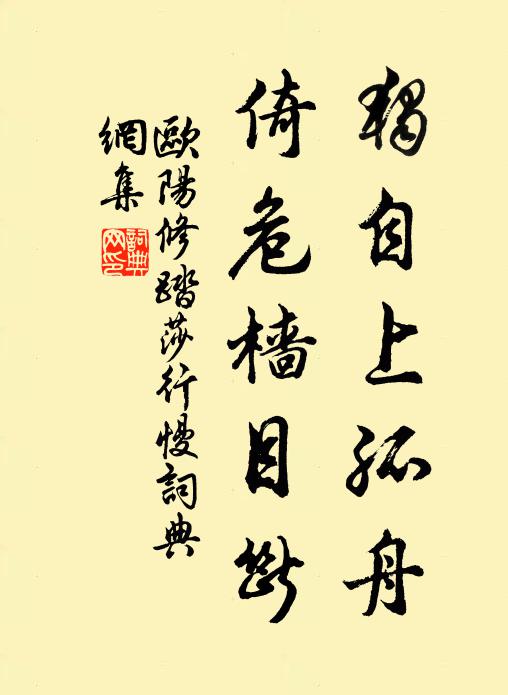 獨自上孤舟
倚危檣目斷
歐陽修踏莎行慢詞典
網集
詞典
网印